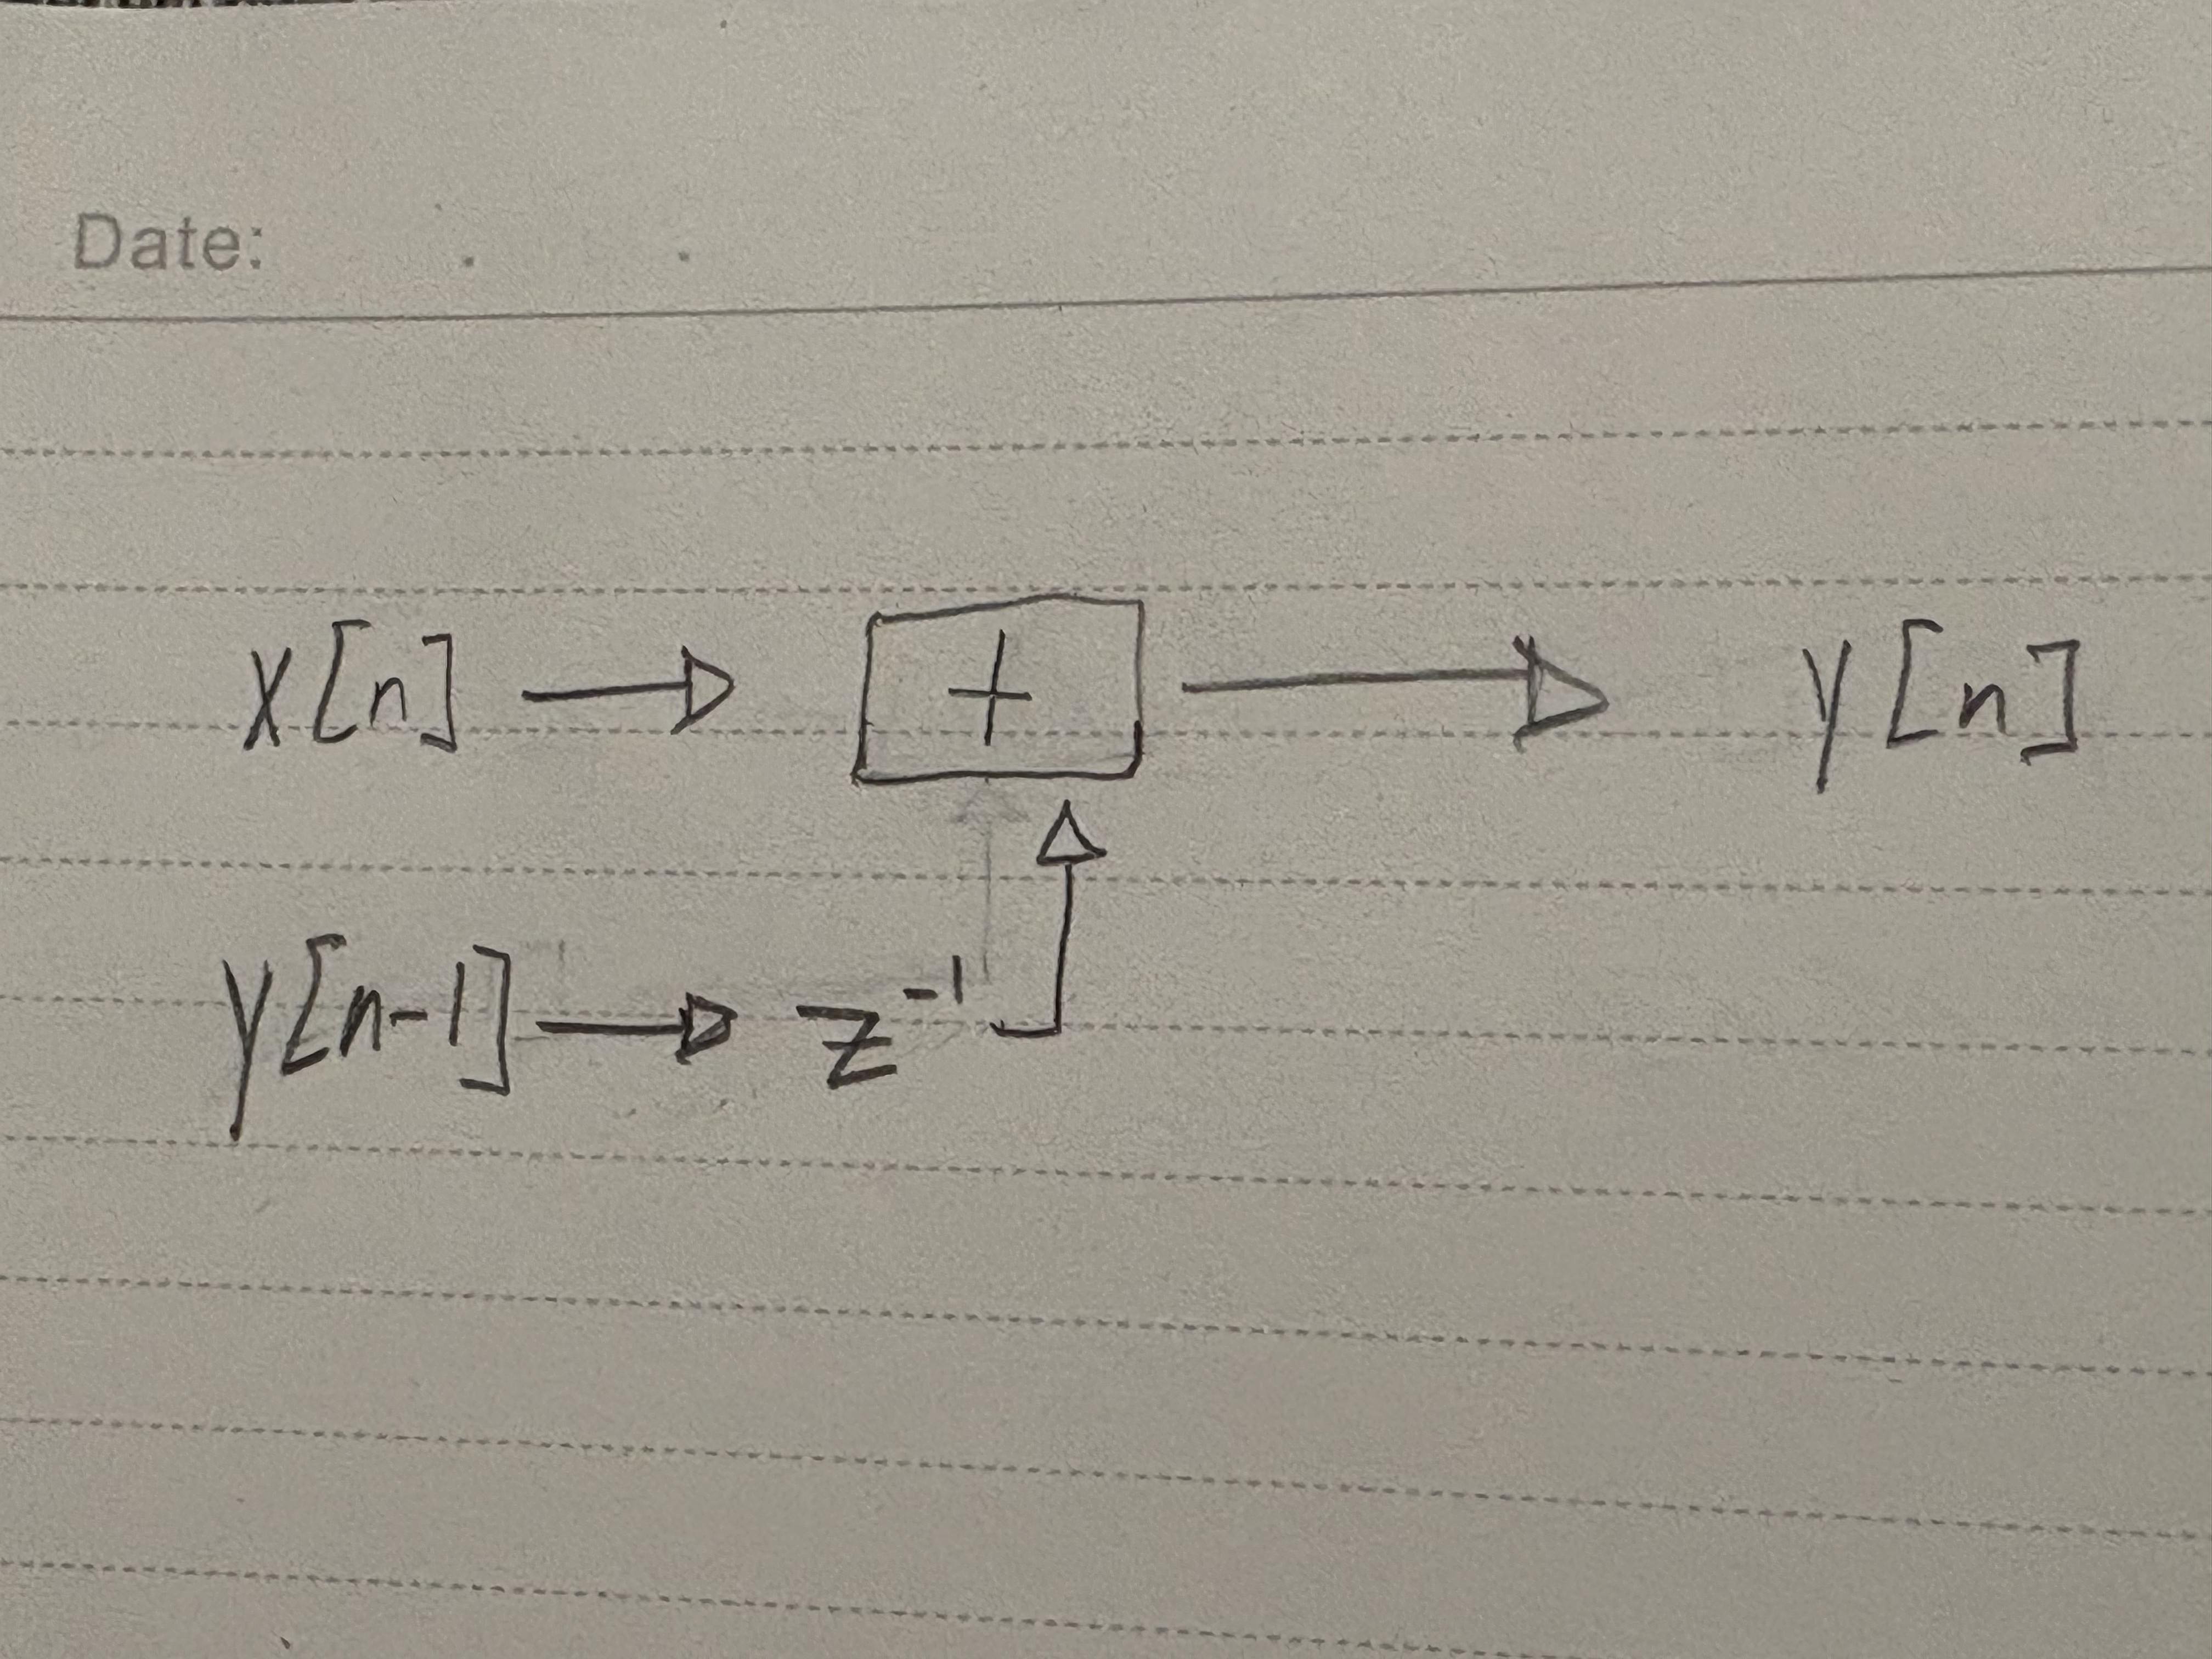 Date: . .
x[n] + y[n]
y[n-1] z⁻¹